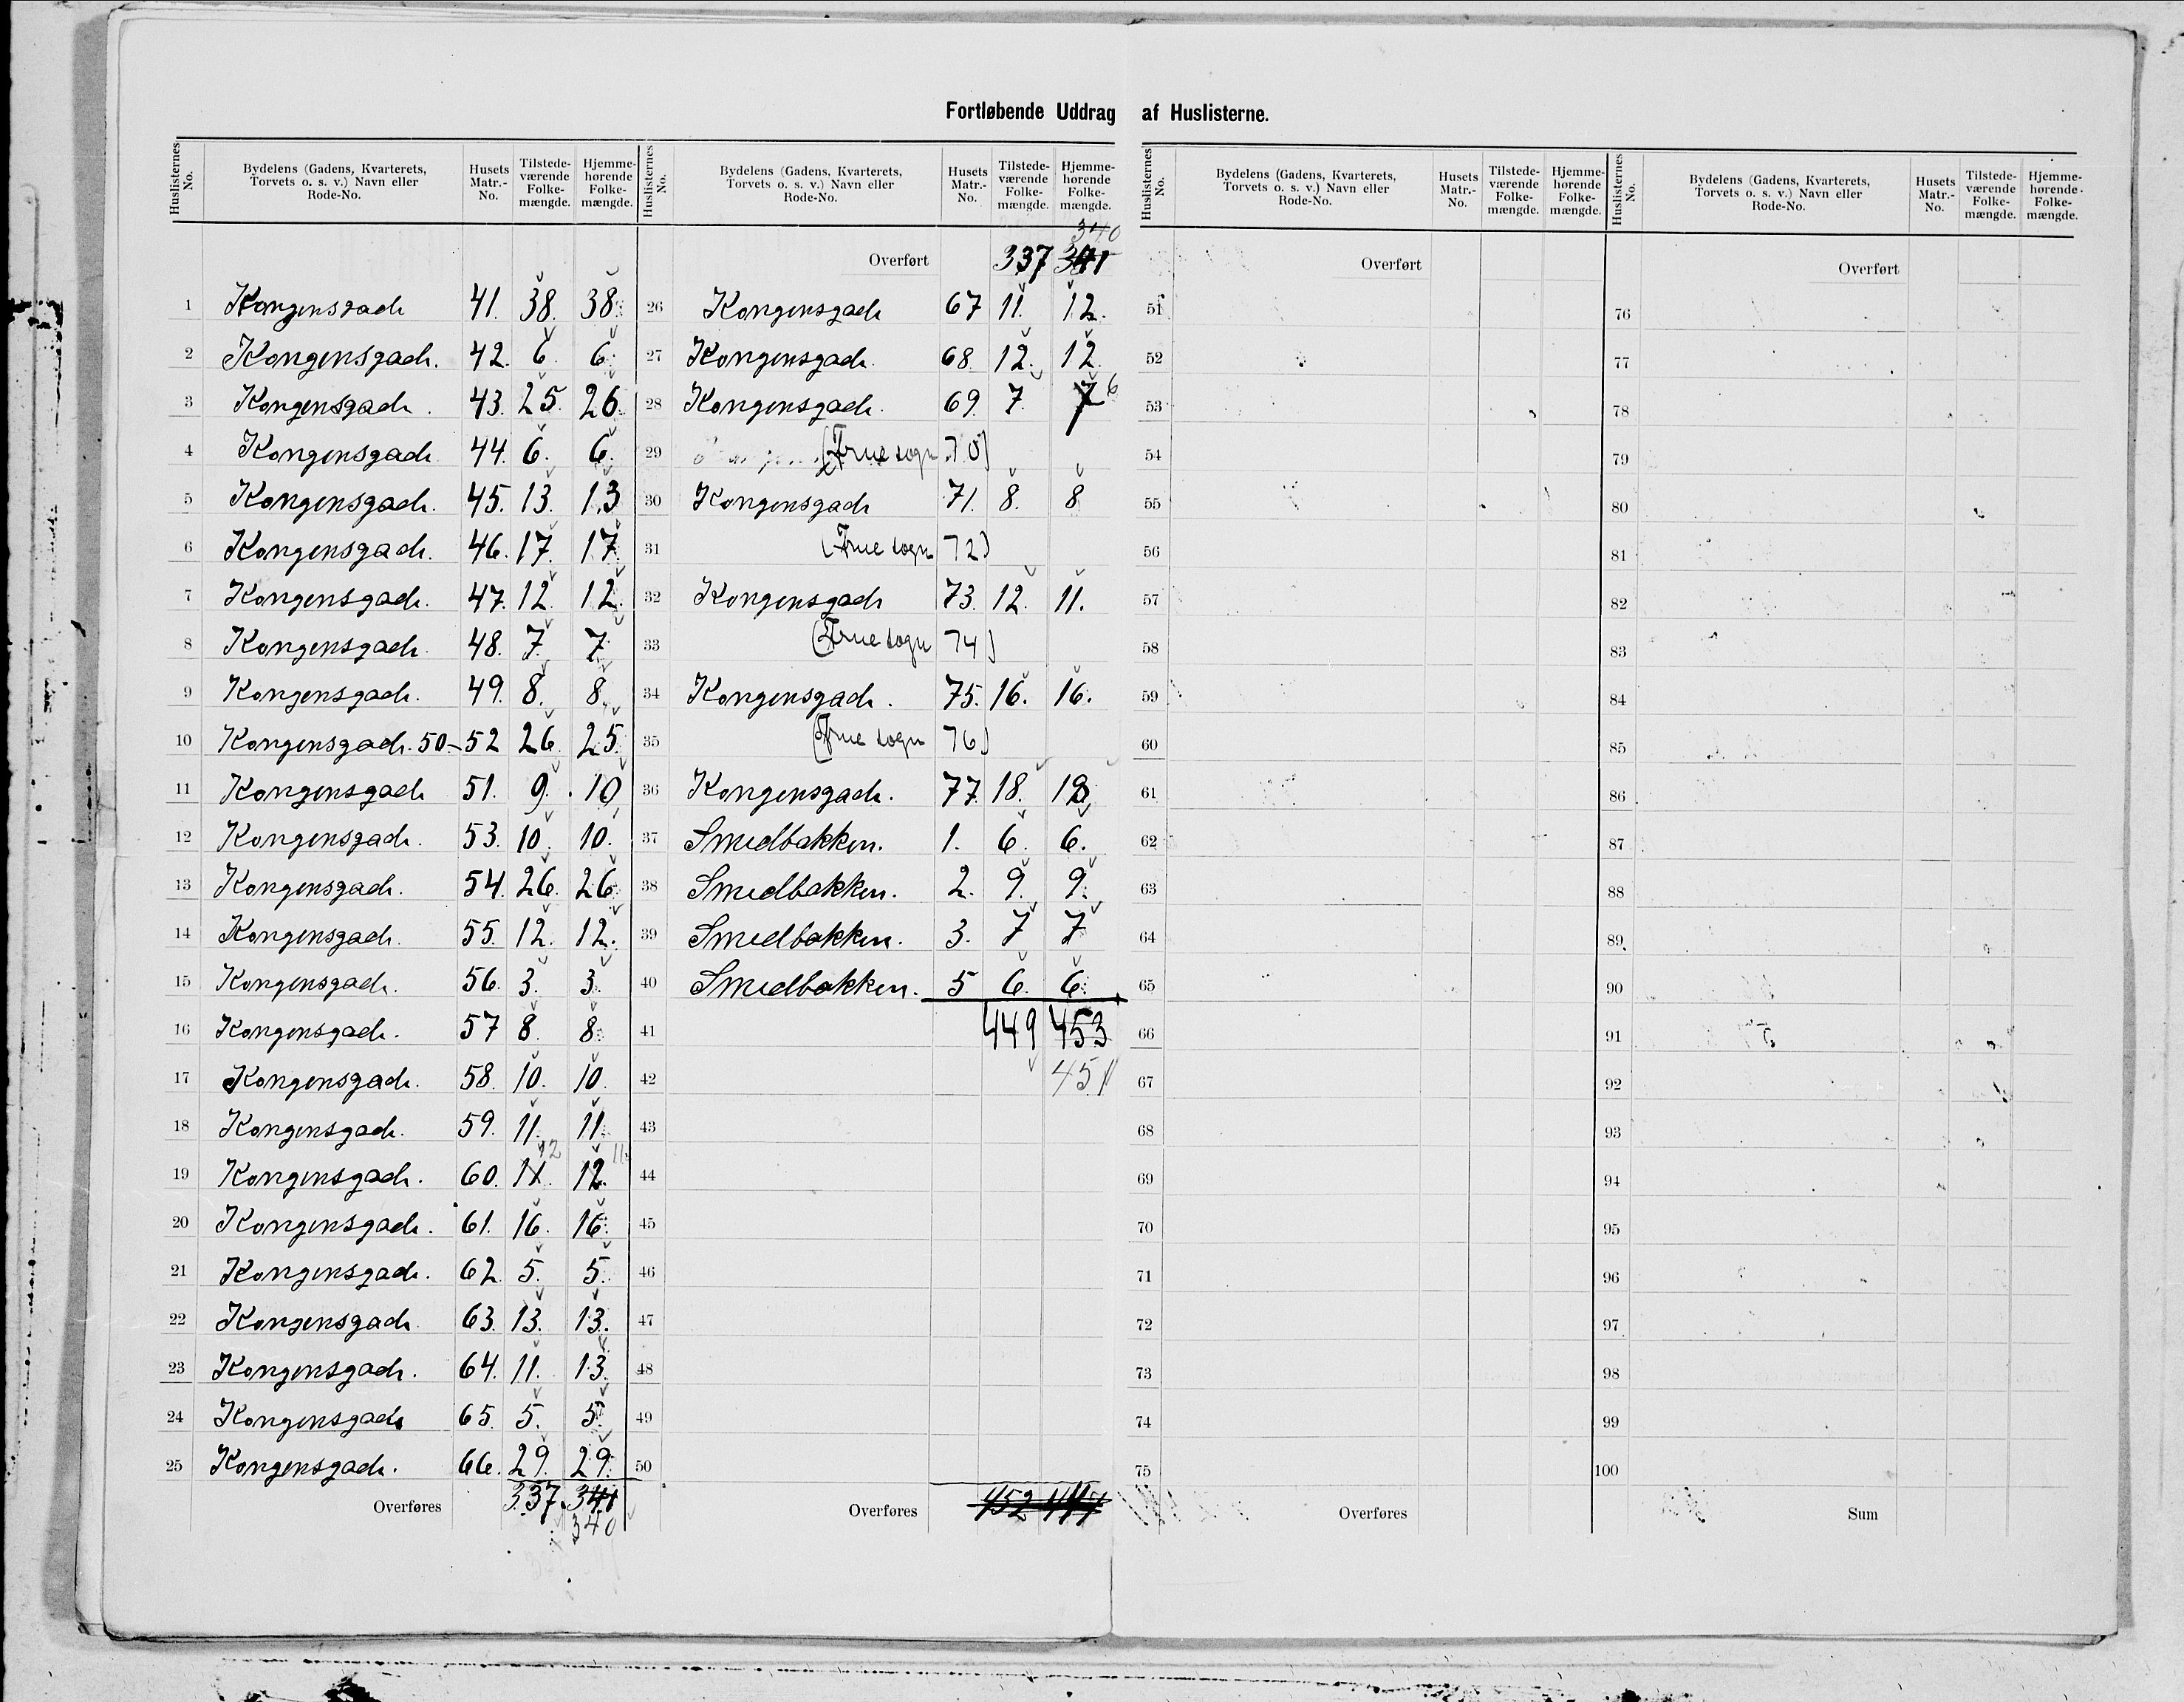 Fortløbende Uddrag af Huslisterne.
Huslisternes No. Bydelens (Gadens, Kvarterets, Torvets o. s. v.) Navn eller Rode-No. Husets Matr.-No. Tilstede-værende Folke-mængde. Hjemme-hørende Folke-mængde.
1 Kongensgade 41. 38. 38.
2 Kongensgade. 42. 6. 6.
3 Kongensgade. 43. 25. 26.
4 Kongensgade 44. 6. 6.
5 Kongensgade. 45. 13. 13
6 Kongensgade. 46. 17. 17.
7 Kongensgade. 47. 12. 12.
8 Kongensgade. 48. 7. 7.
9 Kongensgade. 49. 8. 8.
10 Kongensgade. 50-52 26. 25.
11 Kongensgade 51. 9. 10
12 Kongensgade. 53. 10. 10.
13 Kongensgade. 54. 26. 26.
14 Kongensgade. 55. 12. 12.
15 Kongensgade. 56. 3. 3.
16 Kongensgade. 57 8. 8.
17 Kongensgade. 58. 10. 10.
18 Kongensgade. 59. 11. 11.
19 Kongensgade. 60. 11. 12 12. 11.
20 Kongensgade. 61. 16. 16.
21 Kongensgade. 62. 5. 5.
22 Kongensgade 63. 13. 13.
23 Kongensgade. 64. 11. 13.
24 Kongensgade 65. 5. 5.
25 Kongensgade. 66. 29. 29.
Overføres 337. 341
340
Huslisternes No. Bydelens (Gadens, Kvarterets, Torvets o. s. v.) Navn eller Rode-No. Husets Matr.-No. Tilstede-værende Folke-mængde. Hjemme-hørende Folke-mængde.
340
Overført 337 341
26 Kongensgade 67 11. 12.
27 Kongensgade. 68. 12. 12
28 Kongensgade. 69. 7. 7 6
29 (Frue sogn 70)
30 Kongensgade 71. 8. 8
31 (Frue sogn 72)
32 Kongensgade 73. 12. 11.
33 (Frue sogn 74)
34 Kongensgade. 75. 16. 16.
35 (Frue sogn 76)
36 Kongensgade. 77. 18. 19
37 Smedbakken. 1. 6. 6.
38 Smedbakken. 2. 9. 9.
39 Smedbakken. 3. 7 7
40 Smedbakken. 5 6. 6.
41 449 453
42 451
43
44
45
46
47
48
49
50
Overføres 452 447
Huslisternes No. Bydelens (Gadens, Kvarterets, Torvets o. s. v.) Navn eller Rode-No. Husets Matr.-No. Tilstede-værende Folke-mængde. Hjemme-hørende Folke-mængde.
Overført
51
52
53
54
55
56
57
58
59
60
61
62
63
64
65
66
67
68
69
70
71
72
73
74
75
Overføres
Huslisternes No. Bydelens (Gadens, Kvarterets, Torvets o. s. v.) Navn eller Rode-No. Husets Matr.-No. Tilstede-værende Folke-mængde. Hjemme-hørende Folke-mængde.
Overført
76
77
78
79
80
81
82
83
84
85
86
87
88
89
90
91
92
93
94
95
96
97
98
99
100
Sum